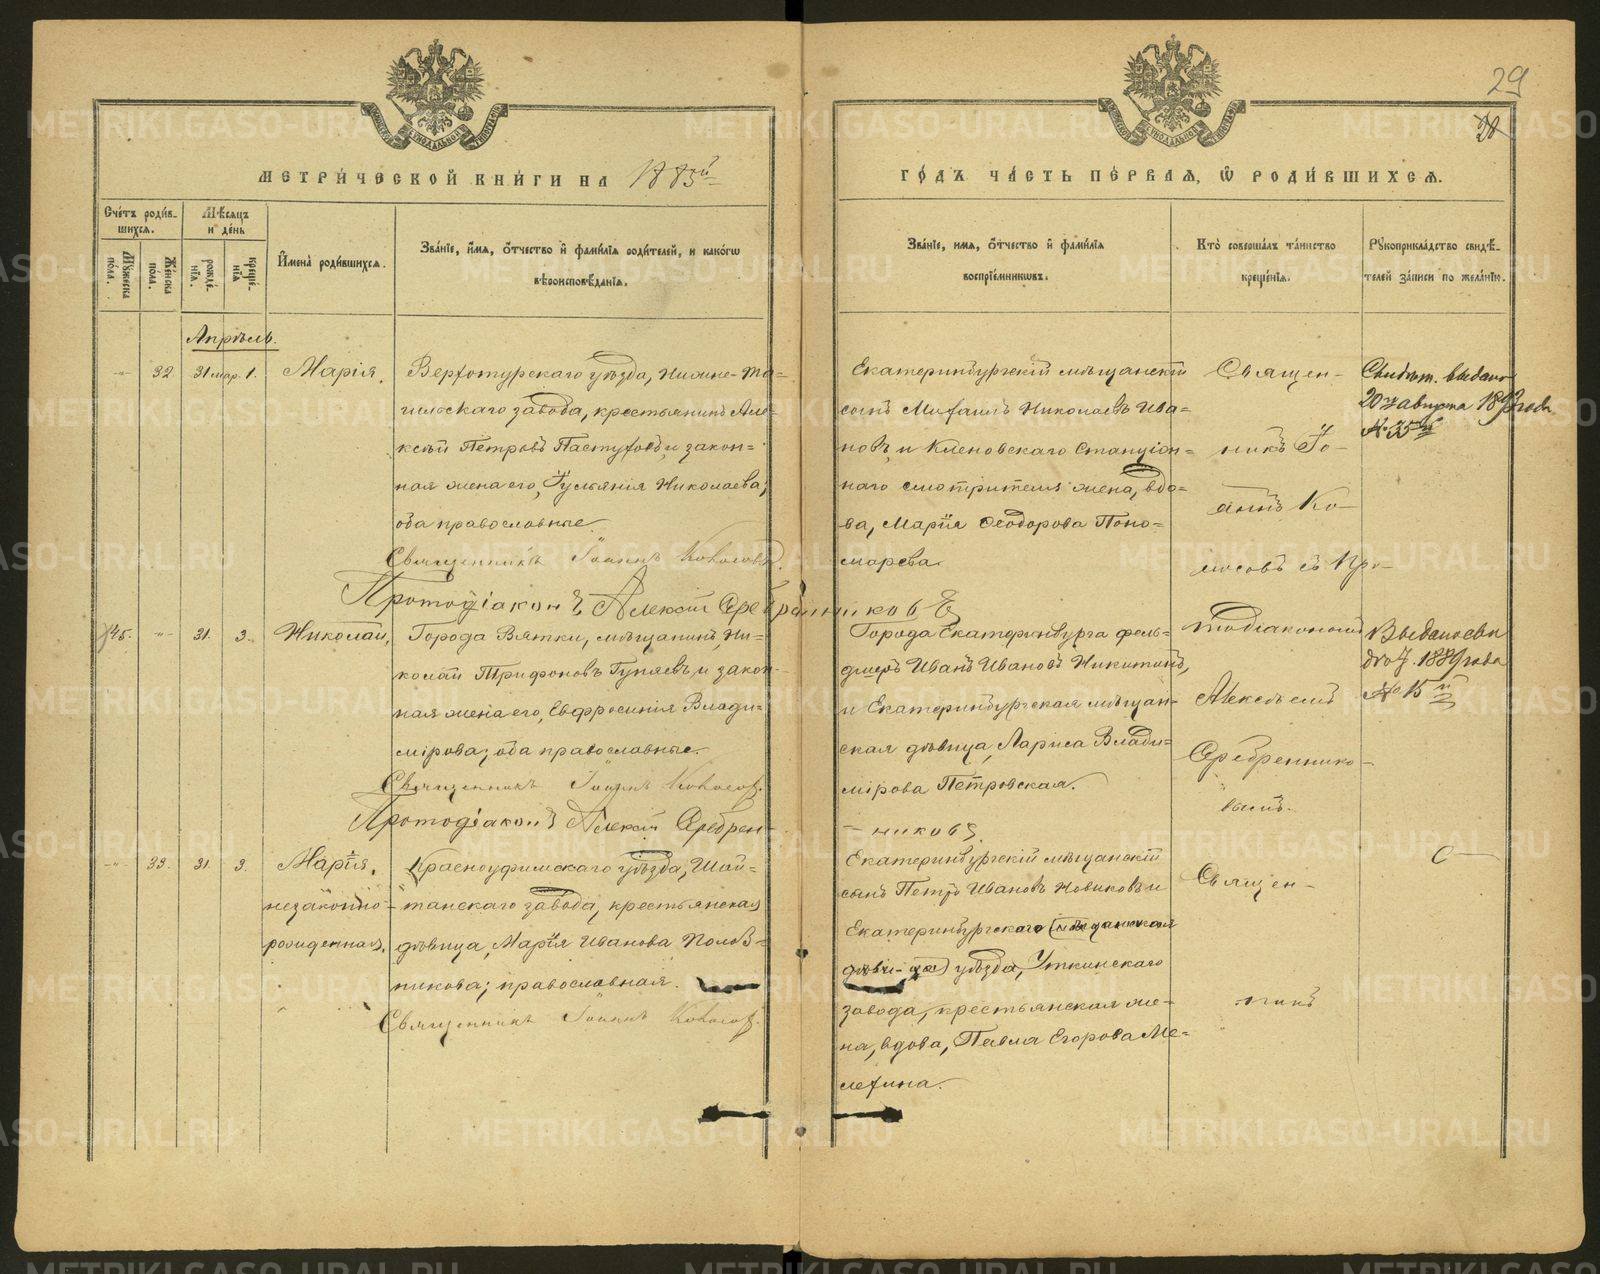 29
28
МЕТРИ́ЧЕСКОЙ КНИ́ГИ НА 1885й
ГО́ДЪ ЧА́СТЬ ПЕ́РВАЯ, Ѡ РОДИ́ВШИХСЯ.
Сче́тъ роди́в-
шихся.
Му́жеска по́ла.
Же́нска по́ла.
Мѣ́сяцъ
и де́нь
рожде́-
нїя.
креще́-
нїя.
И҆мена̀ роди́вшихся.
Зва́нїе, и҆́мя, ѻ҆́тчество и҆ фами́лїя роди́телей, и како́гѡ
вѣроисповѣ́данїя.
Зва́нїе, имя, ѻ҆́тчество и҆ фами́лїя
воспрїе́мниковъ.
Кто̀ соверша́лъ та́инство
креще́нїя.
Рꙋкоприкла́дство свидѣ́-
телей за́писи по жела́нїю.
Апрѣль.
-"- 32 31 мар. 1. Марія.
Верхотурскаго уѣзда, Нижне-Та=
гильскаго завода, крестьянинъ Але=
ксѣй Петровъ Пастуховъ, и закон=
ная жена его, Іульянія Николаева;
оба православные.
Священникъ Іоаннъ Колосовъ.
Протодіаконъ Алексій Серебренниковъ
Екатеринбургскій мѣщанскій
сынъ Михаилъ Николаевъ Ива=
новъ, и Кленовскаго Станціон=
наго смотрителя жена, вдо=
ва, Марія Ѳеодорова Поно=
марева.
Священ-
никъ Іо-
аннъ Ко-
лосовъ съ Про-
тодіакономъ
Алексѣемъ
Серебреннико-
вымъ.
Свидѣт. выдано
20го августа 1893 года
№ 35
45. -"- 31. 3. Николай,
Города Вятки, мѣщанинъ, Ни=
колай Трифоновъ Гуляевъ, и закон=
ная жена его, Евфросинія Влади=
мірова; оба православные.
Священникъ Іоаннъ Колосов.
Протодіаконъ Алексій Серебрен-
Города Екатеринбурга фель=
дшеръ Иванъ Ивановъ Никитинъ,
и Екатеринбургская мѣщан=
ская дѣвица, Лариса Влади=
мірова Петровская.
- никовъ.
1889 года
№ 15
-"- 33. 31. 3. Марія,
незаконно-
рожденная.
Красноуфимскаго уѣзда, Шай=
танскаго завода, крестьянская
дѣвица, Марія Иванова Полов=
никова; православная.
Священникъ Іоаннъ Колосов.
Екатеринбургскій мѣщанскій
сынъ Петръ Ивановъ Новиковъ и
Екатеринбургскаго (мѣщанская
дѣви-ца) уѣзда, Уткинскаго
завода, крестьянская же=
на, вдова, Павла Егорова Ме=
лехина.
Священ-
никъ
METRIKI.GASO-URAL.RU